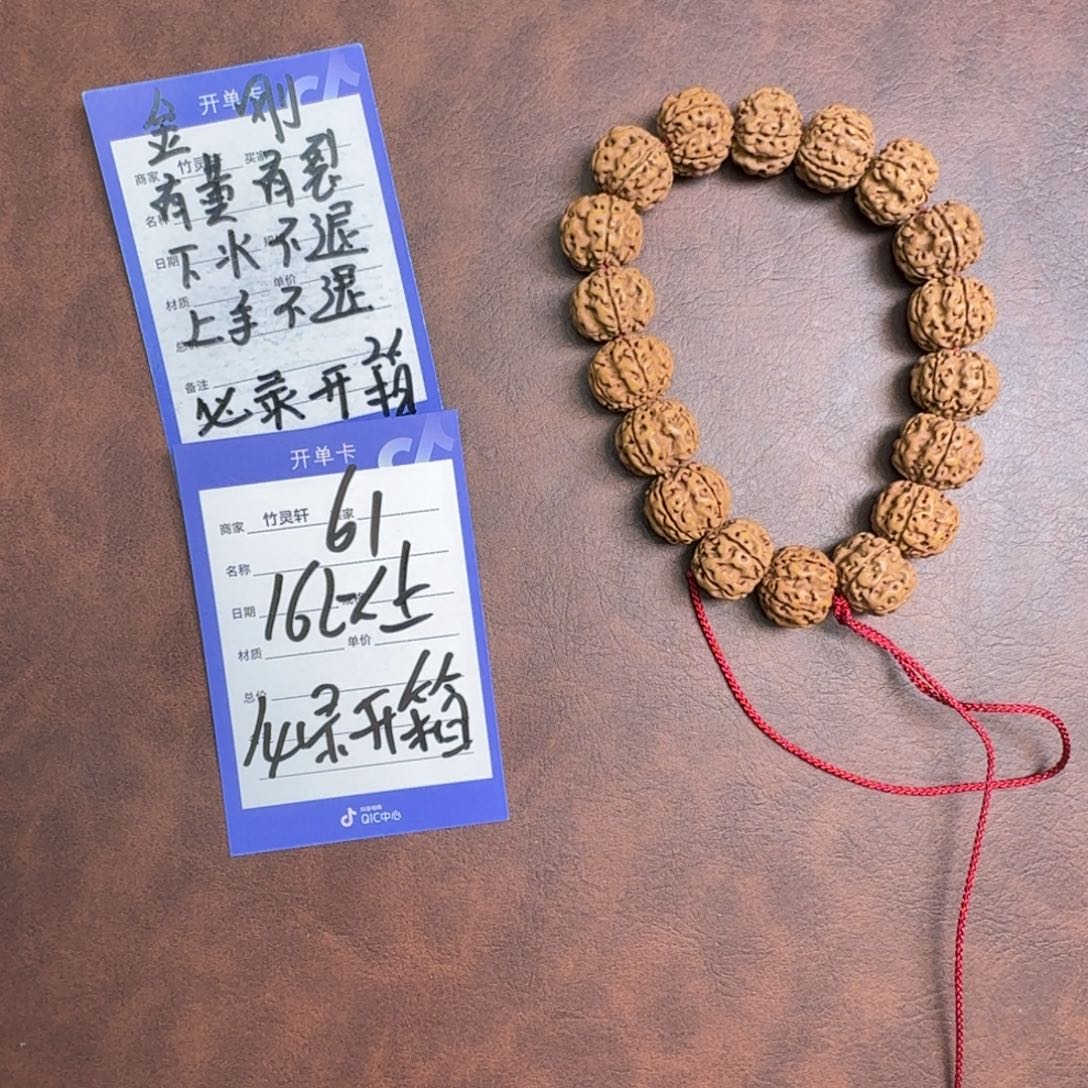 开单卡
金刚
商家 竹灵 买家
有黄有裂
名称
下水不退
日期
材质 单价
上手不退
备注
必录开箱
开单卡
61
商家 竹灵轩 家
名称
16
日期
材质 单价
总价
必录开箱
抖音电商
QIC中心